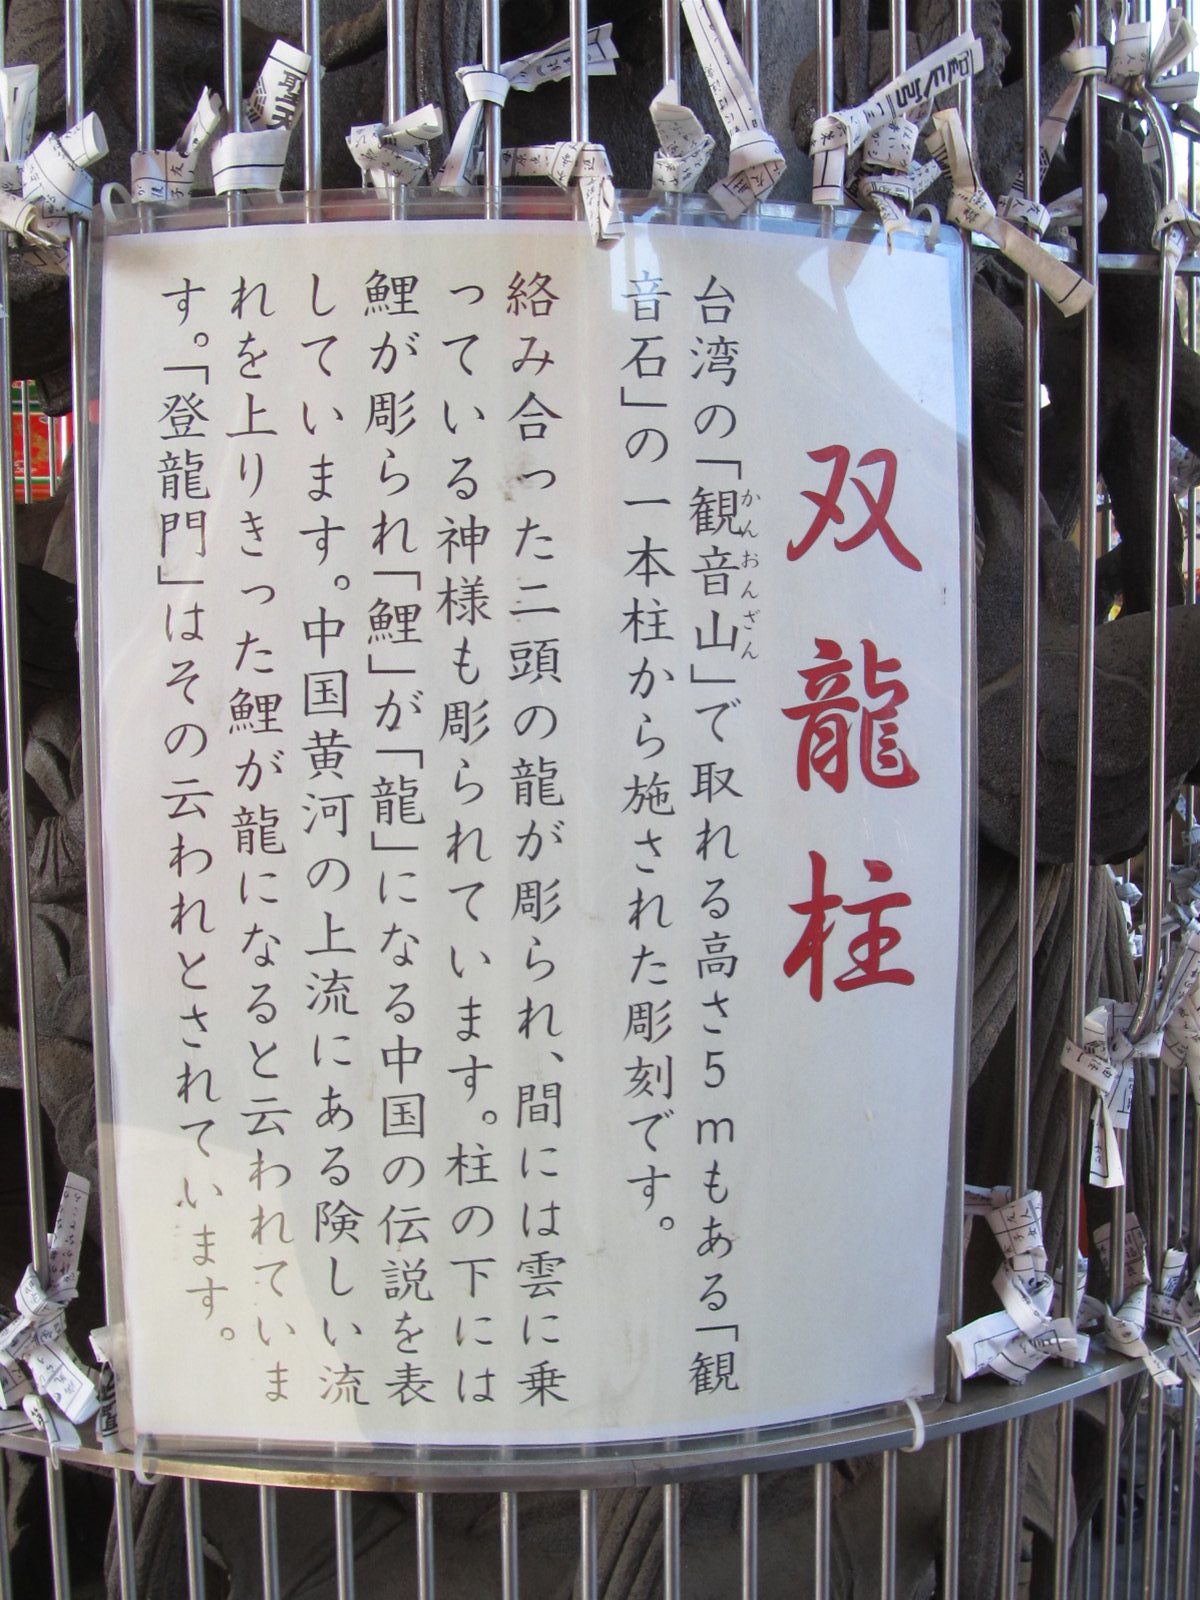 双龍柱
台湾の「観音山」で取れる高さ5mもある「観
かんおんざん
音石」の一本柱から施された彫刻です。
絡み合った二頭の龍が彫られ、間には雲に乗
っている神様も彫られています。柱の下には
鯉が彫られ「鯉」が「龍」になる中国の伝説を表
しています。中国黄河の上流にある険しい流
れを上りきった鯉が龍になると云われていま
す。「登龍門」はその云われとされています。